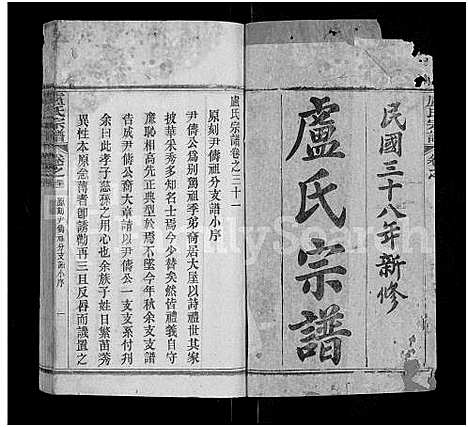 民國三十八年新修
盧氏宗譜
盧氏宗譜卷之三十一
原刻尹儔祖分支譜小序
尹儔公爲別駕祖季弟裔居大屋以詩禮世其家
披華采秀多知名士焉今少替矣然皆禮義自守
廉恥相高先正典型於焉不墜今年秋余支支譜
告成尹儔公裔大章請以尹儔公一支支系付刋
余曰此孝子慈孫之用心也余族子姓日繁苗莠
異性本原愈薄者卽誘勸再三且反唇而譏置之
盧氏宗譜
卷之
原刻尹儔祖分支譜小序
一